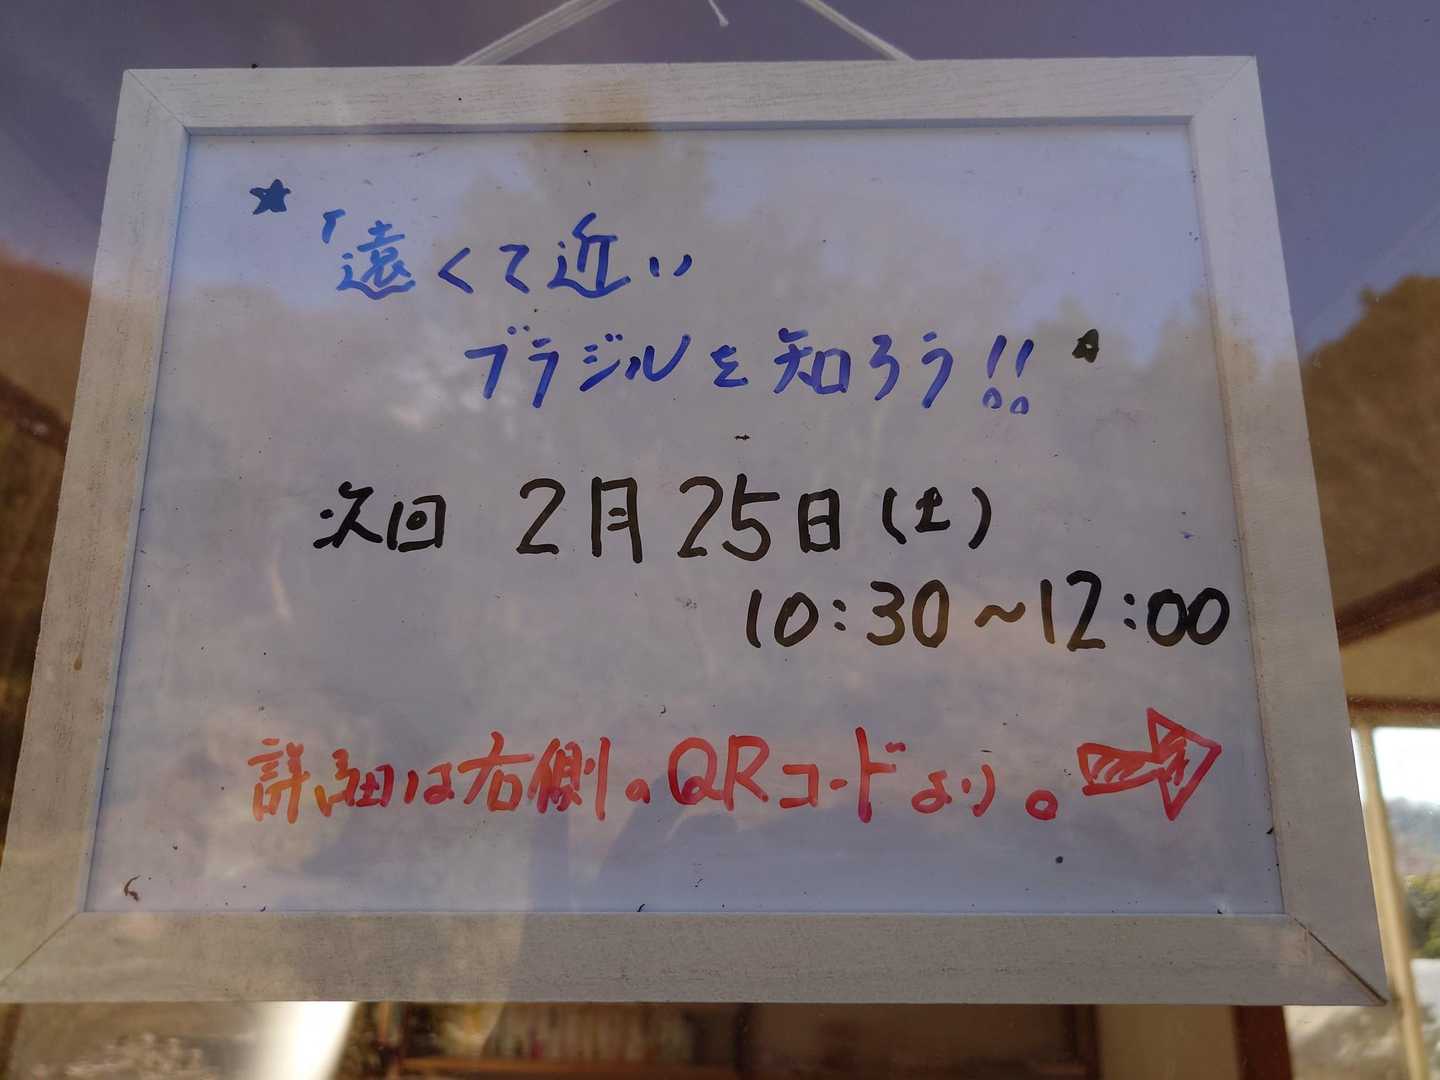 ★「遠くて近い
ブラジルを知ろう!!★
次回 2月25日(土)
10:30～12:00
詳細は右側のQRコードより。➡